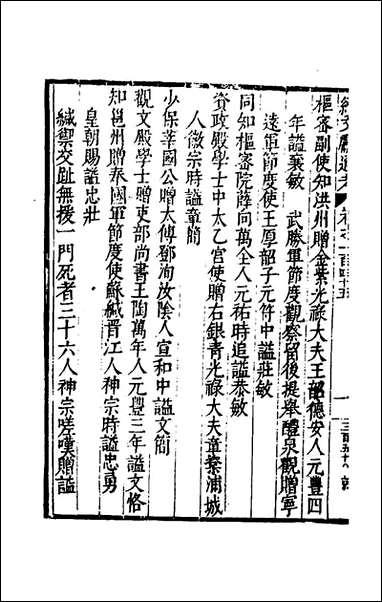 續文獻通考 卷之一百四十五 一
樞密副使知洪州贈金紫光祿大夫王韶德安人元豐四
年謚襄敏 武勝軍節度觀察留後提舉醴泉觀贈寧
遠軍節度使王厚韶子元符中謚莊敏
同知樞密院薛向萬全人元祐時追謚恭敏
資政殿學士中太乙宮使贈右銀青光祿大夫章楶浦城
人徽宗時謚章簡
少保莘國公贈太傅鄧洵汝陰人宣和中謚文簡
觀文殿學士贈吏部尚書王陶萬年人元豐三年謚文恪
知邕州贈奉國軍節度使蘇緘晉江人神宗時謚忠勇
皇朝賜謚忠壯
緘禦交趾無援一門死者三十六人神宗嗟嘆贈謚